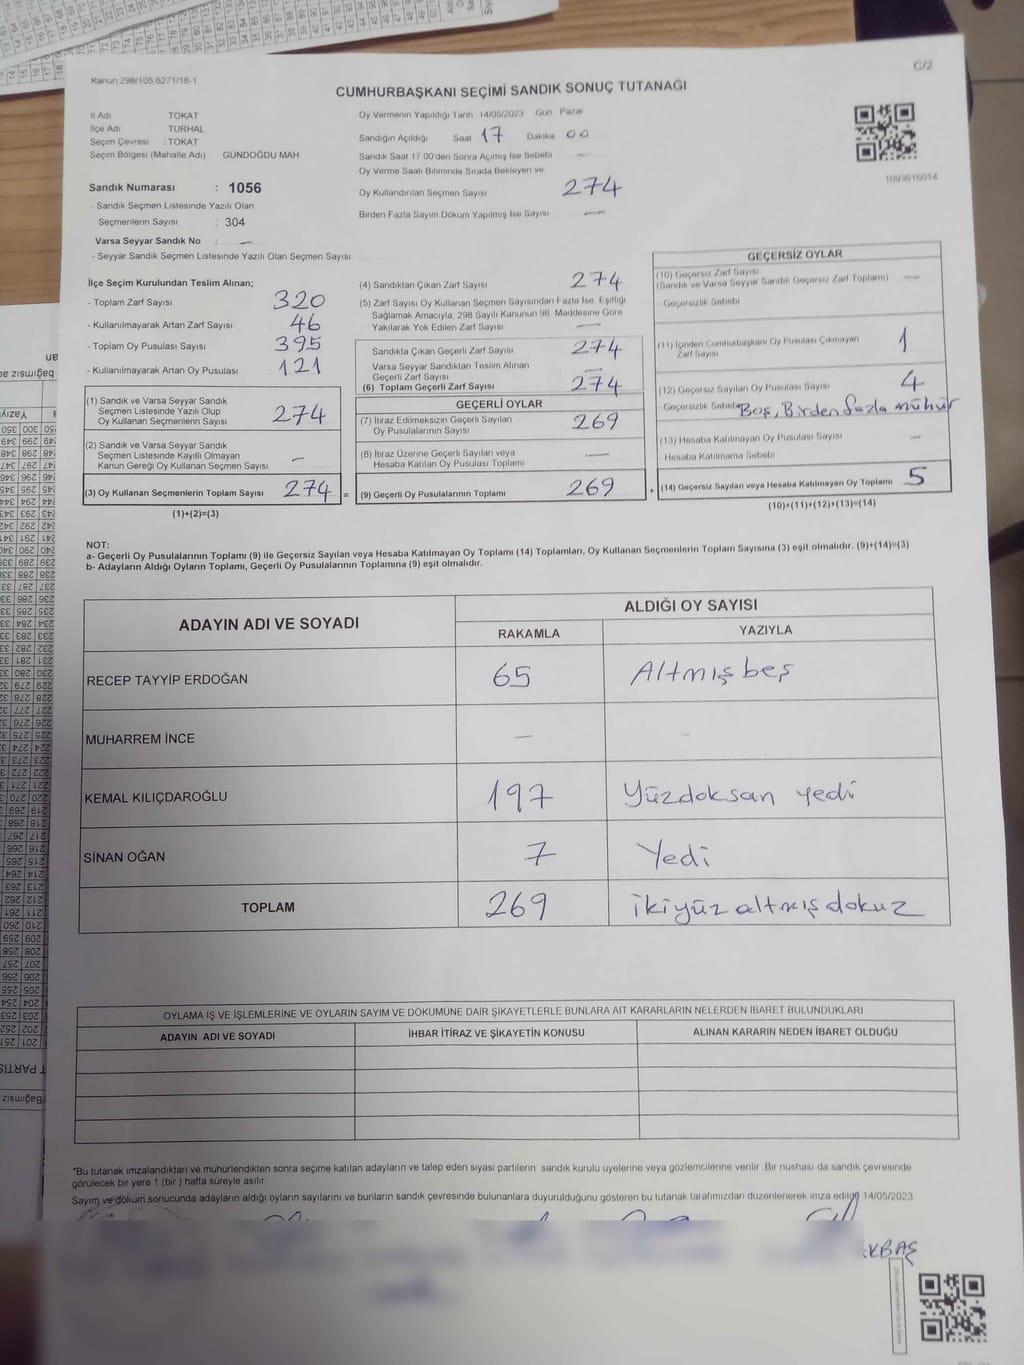 C/2
Kanun 298/105,6271/18-1
CUMHURBAŞKANI SEÇİMİ SANDIK SONUÇ TUTANAĞI
İl Adı TOKAT
İlçe Adı TURHAL
Seçim Çevresi : TOKAT
Seçim Bölgesi (Mahalle Adı) GÜNDOĞDU MAH
Sandık Numarası : 1056
- Sandık Seçmen Listesinde Yazılı Olan
Seçmenlerin Sayısı : 304
Varsa Seyyar Sandık No : —
- Seyyar Sandık Seçmen Listesinde Yazılı Olan Seçmen Sayısı
Oy Vermenin Yapıldığı Tarih 14/05/2023 Gün Pazar
Sandığın Açıldığı Saat 17 Dakika 00
Sandık Saat 17 00'den Sonra Açılmış İse Sebebi —
Oy Verme Saati Bitiminde Sırada Bekleyen ve
Oy Kullandırılan Seçmen Sayısı 274
Birden Fazla Sayım Döküm Yapılmış İse Sayısı —
1093616014
İlçe Seçim Kurulundan Teslim Alınan;
- Toplam Zarf Sayısı 320
- Kullanılmayarak Artan Zarf Sayısı 46
- Toplam Oy Pusulası Sayısı 395
- Kullanılmayarak Artan Oy Pusulası 121
(1) Sandık ve Varsa Seyyar Sandık
Seçmen Listesinde Yazılı Olup
Oy Kullanan Seçmenlerin Sayısı 274
(2) Sandık ve Varsa Seyyar Sandık
Seçmen Listesinde Kayıtlı Olmayan
Kanun Gereği Oy Kullanan Seçmen Sayısı —
(3) Oy Kullanan Seçmenlerin Toplam Sayısı 274 =
(1)+(2)=(3)
(4) Sandıktan Çıkan Zarf Sayısı 274
(5) Zarf Sayısı Oy Kullanan Seçmen Sayısından Fazla İse, Eşitliği
Sağlamak Amacıyla, 298 Sayılı Kanunun 98. Maddesine Göre
Yakılarak Yok Edilen Zarf Sayısı —
Sandıkta Çıkan Geçerli Zarf Sayısı 274
Varsa Seyyar Sandıktan Teslim Alınan
Geçerli Zarf Sayısı —
(6) Toplam Geçerli Zarf Sayısı 274
GEÇERLİ OYLAR
(7) İtiraz Edilmeksizin Geçerli Sayılan
Oy Pusulalarının Sayısı 269
(8) İtiraz Üzerine Geçerli Sayılan veya
Hesaba Katılan Oy Pusulası Toplamı —
(9) Geçerli Oy Pusulalarının Toplamı 269 +
GEÇERSİZ OYLAR
(10) Geçersiz Zarf Sayısı
(Sandık ve Varsa Seyyar Sandık Geçersiz Zarf Toplamı) —
- Geçersizlik Sebebi
(11) İçinden Cumhurbaşkanı Oy Pusulası Çıkmayan
Zarf Sayısı 1
(12) Geçersiz Sayılan Oy Pusulası Sayısı 4
- Geçersizlik Sebebi Boş, Birden fazla mühür
(13) Hesaba Katılmayan Oy Pusulası Sayısı —
- Hesaba Katılmama Sebebi
(14) Geçersiz Sayılan veya Hesaba Katılmayan Oy Toplamı 5
(10)+(11)+(12)+(13)=(14)
NOT:
a- Geçerli Oy Pusulalarının Toplamı (9) ile Geçersiz Sayılan veya Hesaba Katılmayan Oy Toplamı (14) Toplamları, Oy Kullanan Seçmenlerin Toplam Sayısına (3) eşit olmalıdır. (9)+(14)=(3)
b- Adayların Aldığı Oyların Toplamı, Geçerli Oy Pusulalarının Toplamına (9) eşit olmalıdır.
ADAYIN ADI VE SOYADI ALDIĞI OY SAYISI
RAKAMLA YAZIYLA
RECEP TAYYİP ERDOĞAN 65 Altmışbeş
MUHARREM İNCE — -
KEMAL KILIÇDAROĞLU 197 Yüzdoksan yedi
SİNAN OĞAN 7 Yedi
TOPLAM 269 ikiyüz altmış dokuz
OYLAMA İŞ VE İŞLEMLERİNE VE OYLARIN SAYIM VE DÖKÜMÜNE DAİR ŞİKAYETLERLE BUNLARA AİT KARARLARIN NELERDEN İBARET BULUNDUKLARI
ADAYIN ADI VE SOYADI İHBAR İTİRAZ VE ŞİKAYETİN KONUSU ALINAN KARARIN NEDEN İBARET OLDUĞU
*Bu tutanak imzalandıktan ve mühürlendikten sonra seçime katılan adayların ve talep eden siyasi partilerin sandık kurulu üyelerine veya gözlemcilerine verilir. Bir nüshası da sandık çevresinde
görülecek bir yere 1 (bir ) hafta süreyle asılır.
Sayım ve döküm sonucunda adayların aldığı oyların sayılarını ve bunların sandık çevresinde bulunanlara duyurulduğunu gösteren bu tutanak tarafımızdan düzenlenerek imza edildi 14/05/2023
KBAŞ